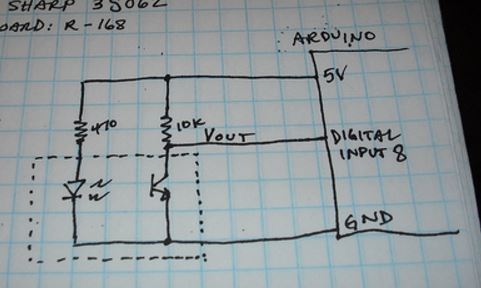 SHARP
OARD: R-168
ARDUINO
5V
470
10K
VOUT
DIGITAL
INPUT 8
GND